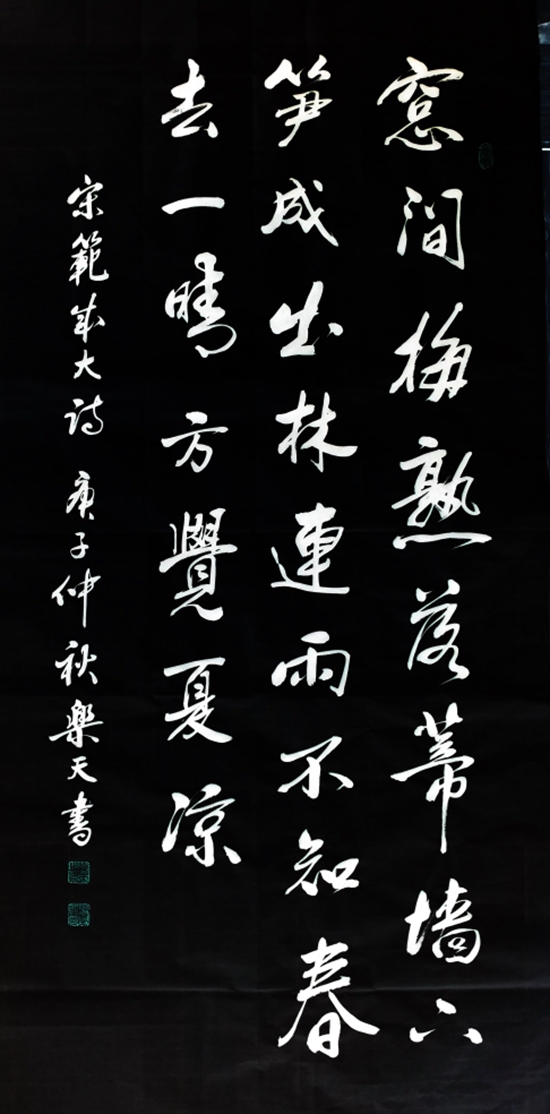 窓间梅熟落蒂墙下
笋成出林連雨不知春
去一晴方覺夏凉
宋範成大詩 庚子仲秋樂天書